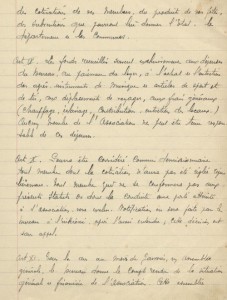 des cotisations de ses membres, du produit de ses fêtes, des
subventions que pourront lui donner l'Etat, le
département et les Communes.
Art IX. Les fonds recueillis seront exclusivement aux dépenses
de bureau, au paiement du loyer, à l'achat et l'entretien
des agrès, instruments de musique et articles de sport et
de tir, aux déplacements de voyages, aux frais généraux
(chauffage, éclairage, contributions, entretien des locaux).
Aucun membre de l'Association ne peut être tenu respon-
sable de ces dépenses.
Art X. Pourra être considéré comme démissionnaire
tout membre dont la cotisation n'aura pas été réglée
Tout membre qui ne se conformera pas aux
présents Statuts ou dont la conduite aura porté atteinte
à l'association, sera radié. Notification en sera faite par le
bureau à l'intéressé, qui l'aura entendu, cette décision est
sans appel.
Art XI. Tous les ans au mois de Janvier, en assemblée
générale, le bureau donne le compte rendu de la situation
générale et financière de l'association. Cette assemblée